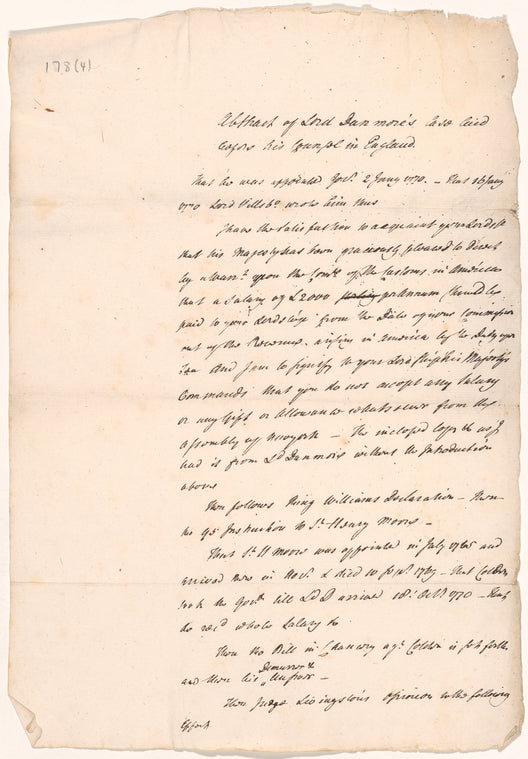 178(4)
Abstract of Lord Dunmore's Case laid
before his Counsel in England.
That he was appointed Gov.r 2 Jany 1770. — That 16 July
1770 Lord Hillsbo. wrote him thus
I have the satisfaction to acquaint your Lordsh.
that his Majesty has been graciously pleased to direct
by a Warr.t upon the Com.rs of the Customs in America
that a Salary of £2000 per Annum should be
paid to your Lordship from the Date of your Commission
out of the Revenue arising in America by the Duty upon
Tea And I am to signify to your Lordship his Majesty's
Commands that you do not accept any Salary
or any Gift or Allowance whatsoever from the
Assembly of New york — The inclosed Copy the
had is from Ld Dunmore without the Introduction
above
Then follows King Williams Declaration — then
the 95 Instruction to Sr. Henry Moore —
That Sr. H Moore was appointed in July 1765 and
arrived here in Nov.r & died 1769 — that Colden
took the Gov.t till Ld D arrived 18.t Oct.r 1770 — that
he rec.d whole Salary to
Then the Bill in Chancery ag.t Colden is set forth
and then his Demurrer &
Answer —
Then Judge Livingston's Opinion to the following
Effect